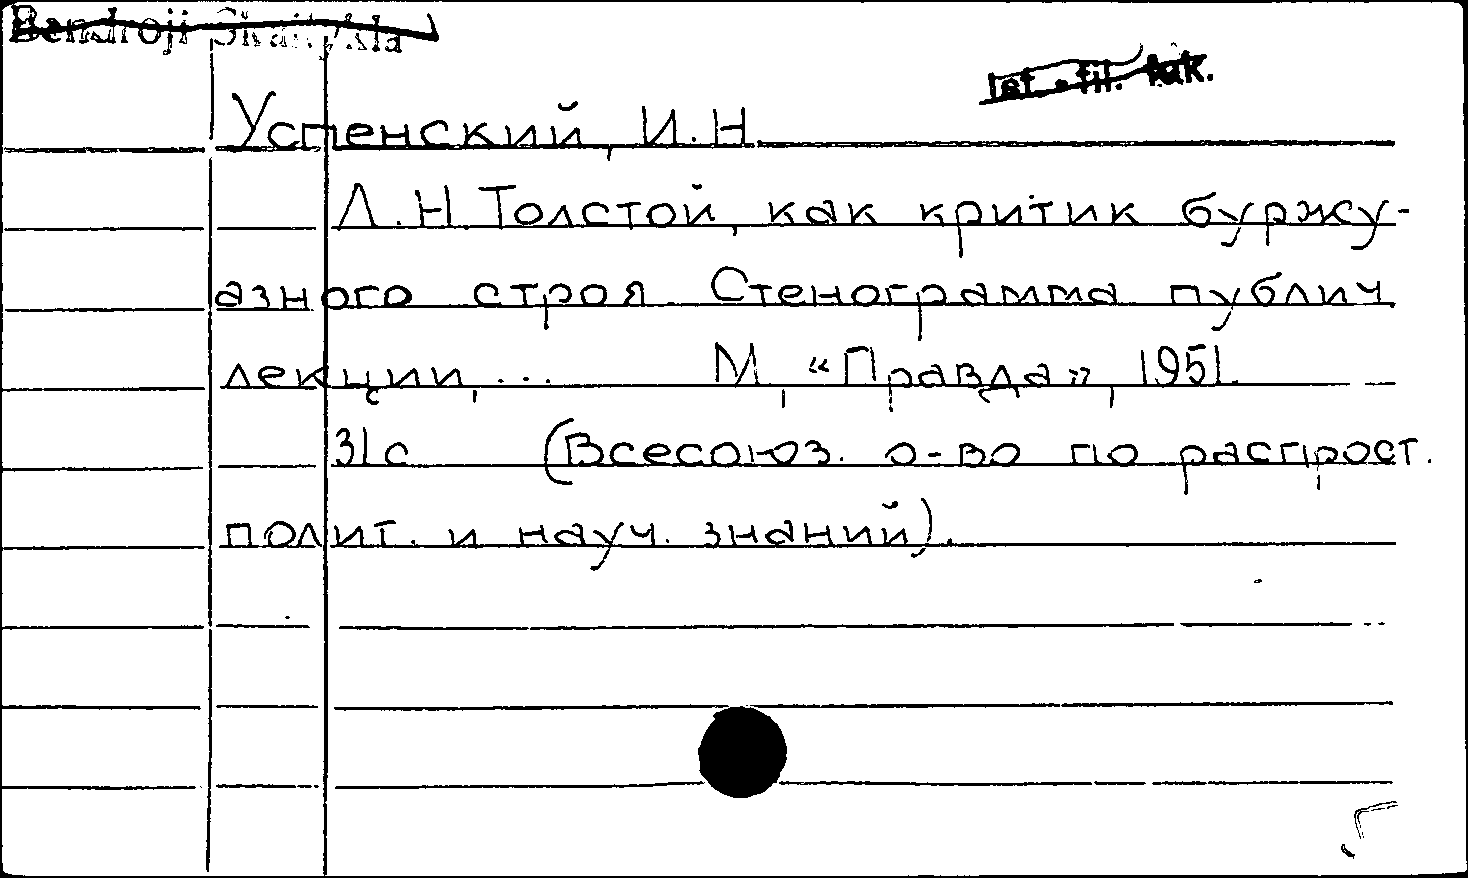 Bendroji Skaitykla
Ist.-fil. fak.
Успенский, И.Н.
Л.Н. Толстой, как критик буржу-
азного строя Стенограмма публич
лекции, ... М, «Правда», 1951.
31 с (Всесоюз. о-во по распрост.
полит. и науч. знаний).